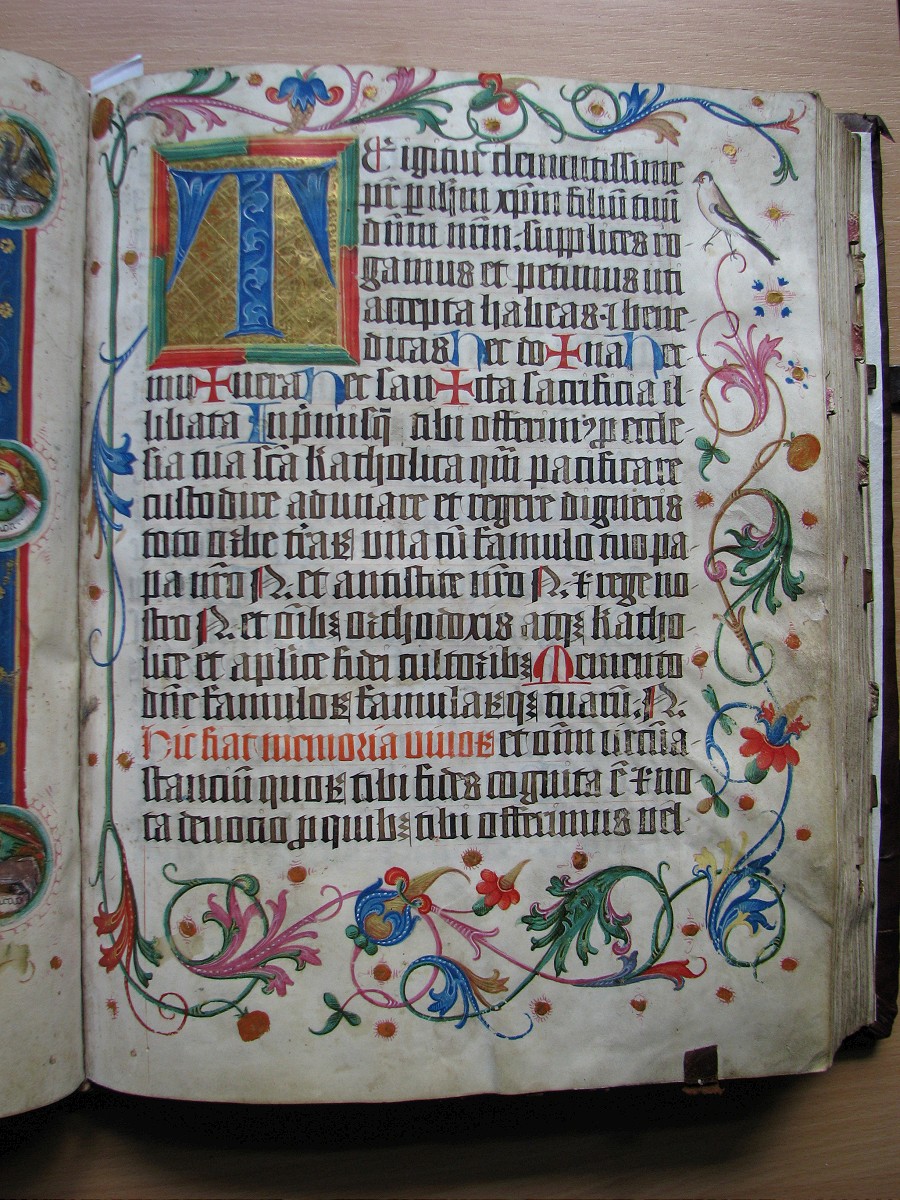 T
E igitur clementissime
pr̄ p ihm xp̄m filiū tuū
dn̄m nr̄m: supplices ro
gamus et petimus uti
accepta habeas ⁊ bene
dicas hec do✠na hec
mu✠nera hec san✠cta sacrificia il
libata Inpīmisq̄ tibi offerim⁹ p eccle-
sia tua sc̄a katholica quā pacificare
custodire adunare et regere digneris
toto orbe t̄raꝝ una cū famulo tuo pa-
pa nr̄o N. et antistite nr̄o N. ⁊ rege no
stro N. et oībꝫ orthodoxis atqꝫ katho-
lice et aplice fidei cultoribꝫ Memento
dn̄e famuloꝝ famulaꝝqꝫ tuarū. N.
Hic fiat memoria uiuoꝝ et om̄ circūa-
stanciū quoꝝ tibi fides cognita ē ⁊ no
ta deuocio p quibꝫ tibi offerimus uel